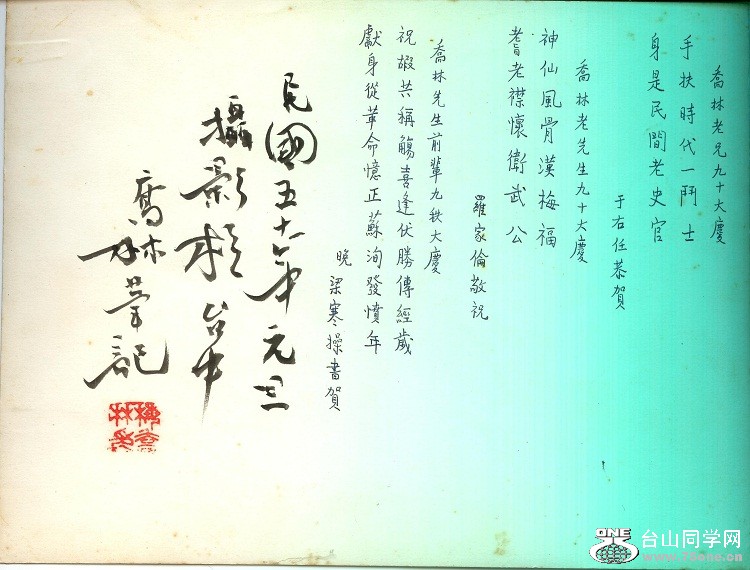 喬林老兄九十大慶
手扶時代一鬥士
身是民間老史官
于右任恭賀
喬林老先生九十大慶
神仙風骨漢梅福
耆老襟懷衛武公
羅家倫敬祝
喬林先生前輩九秩大慶
祝嘏共稱觴喜逢伏勝傳經歲
獻身從革命憶正蘇洵發憤年
晚梁寒操書賀
民國五十一年元旦
攝影於台中
喬林筆記
ONE
台山同学网